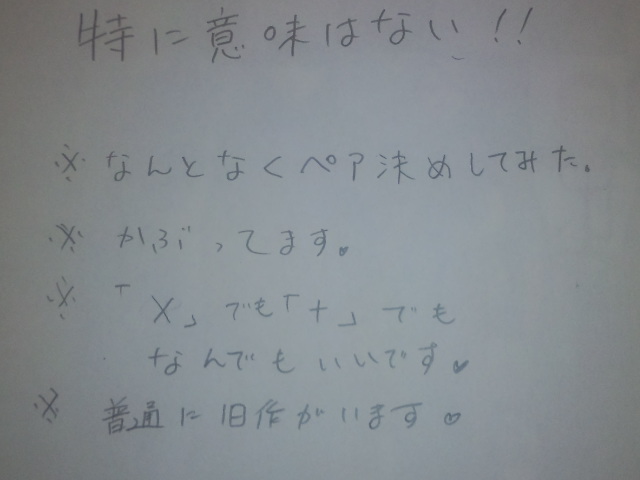 特に意味はない!!
※なんとなくペア決めしてみた。
※かぶってます。
※「×」でも「+」でも
なんでもいいです♥
※普通に旧作がいます♡